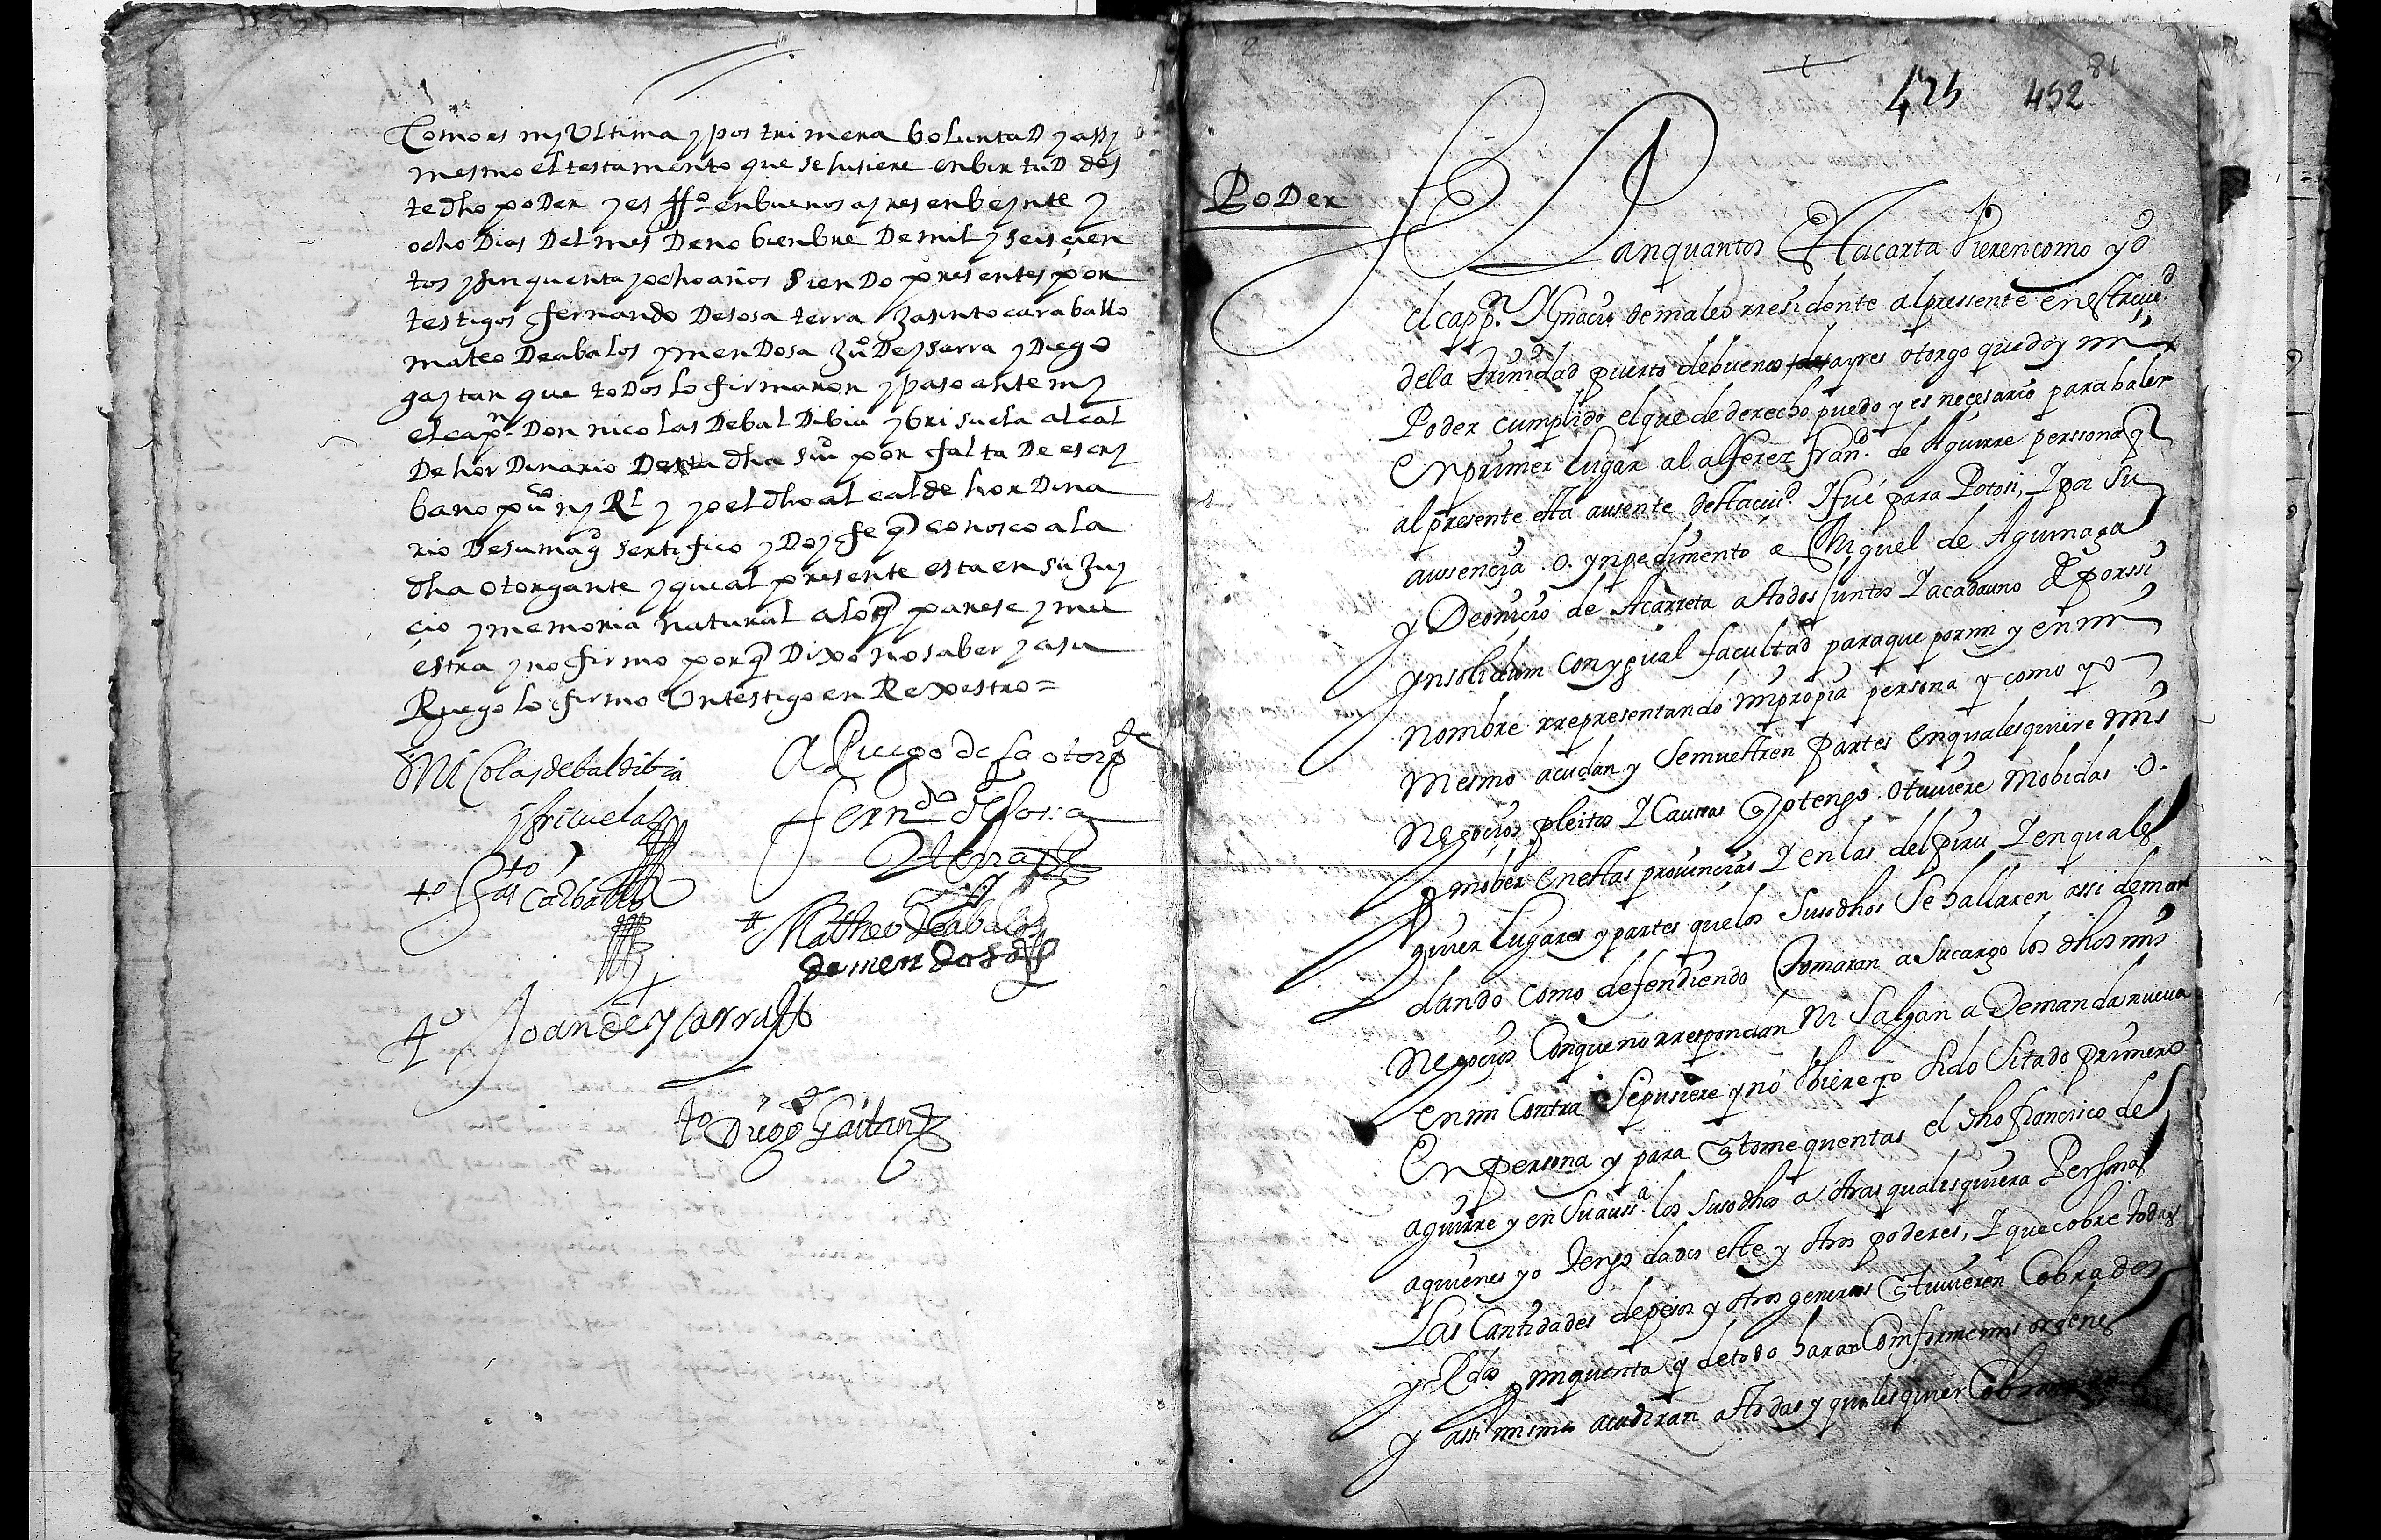 Como es my Ultima y postrimera boluntaD y assy
mesmo el testamento que se hisiere en birtuD des
te dho poDer y es ffo en buenos ayres en beynte y
ocho Dias Del mes De nobienbre De mil y seiscien
tos y sinquenta y ocho años sienDo presentes por
testigos fernando De sosa terra Jasinto caraballo
mateo De abalos y menDosa Juº De ysarra y Diego
gaytan que toDos lo firmaron y paso ante my
el capn Don nicolas De balDibia y brisuela alcal
De horDinario Desta dha ciud por falta De escri
bano puco ny Rl y yo el dho alcalde horDina
rio De su magd sertifico y Doy fe q conosco a la
dha otorgante y que al presente esta en su Juy
cio y memoria natural a lo q parese y mu
estra y no firmo por q Dixo no saber y a su
Ruego lo firmo Un testigo en Rexestro =
D Nicolas de baldibia
y brisuela
A Ruego de la otorgte
ferndo de sosa
terra
to Jasto Carballo
to Matheo de abalos
de mendosa
to Joan de yçarra
to Diego Gaitan
2
425 452 81
PoDer
Sepan quantos Esta carta Vieren como yo
el cappn Ygnacio de maleo rresidente al pressente en esta ciud
de la Trinidad puerto de buenos ayres otorgo que doy mi
Poder cumplido el que de derecho puedo y es necesario para baler
En primer lugar al alferez franco de Aguirre perssona q
al presente esta ausente desta ciud Y fué para Potosi, Y por su
aussençia .o. ynpedimento a Miguel de Aguinaga
y Dionicio de Acarreta a todos Juntos Y a cada uno de por ssi
ynsolidum con ygual facultad para que por mi y en mi
nombre rrepresentando mi propia persona y como yo
mesmo acudan y se muestren partes en qualesquiere mis
negoçios pleitos Y Causas q yo tengo o tuuiere mobidas .o.
por mober en estas prouinçias Y en las del piru Y en quales
quier lugares y partes que los susodhos se hallaren assi deman
dando como defendiendo Tomaran a su cargo los dhos mis
negoçios Con que no rrespondan Ni Salgan a Demanda nueua
en mi Contra Se pusiere y no Vbiere yo Sido Sitado primero
En persona y para q tome quentas el dho francisco de
aguirre y en su aussa los susodhos a otras qualesquiera Personas
a quienes yo tengo dados este y otros poderes, Y que cobre todas
Las Cantidades de pesos y otros generos q tuuieren Cobrados
y Rdos por mi quenta q de todo haran Comforme mis ordenes
y assi mismo acudiran a todas y qualesquier Cobranças